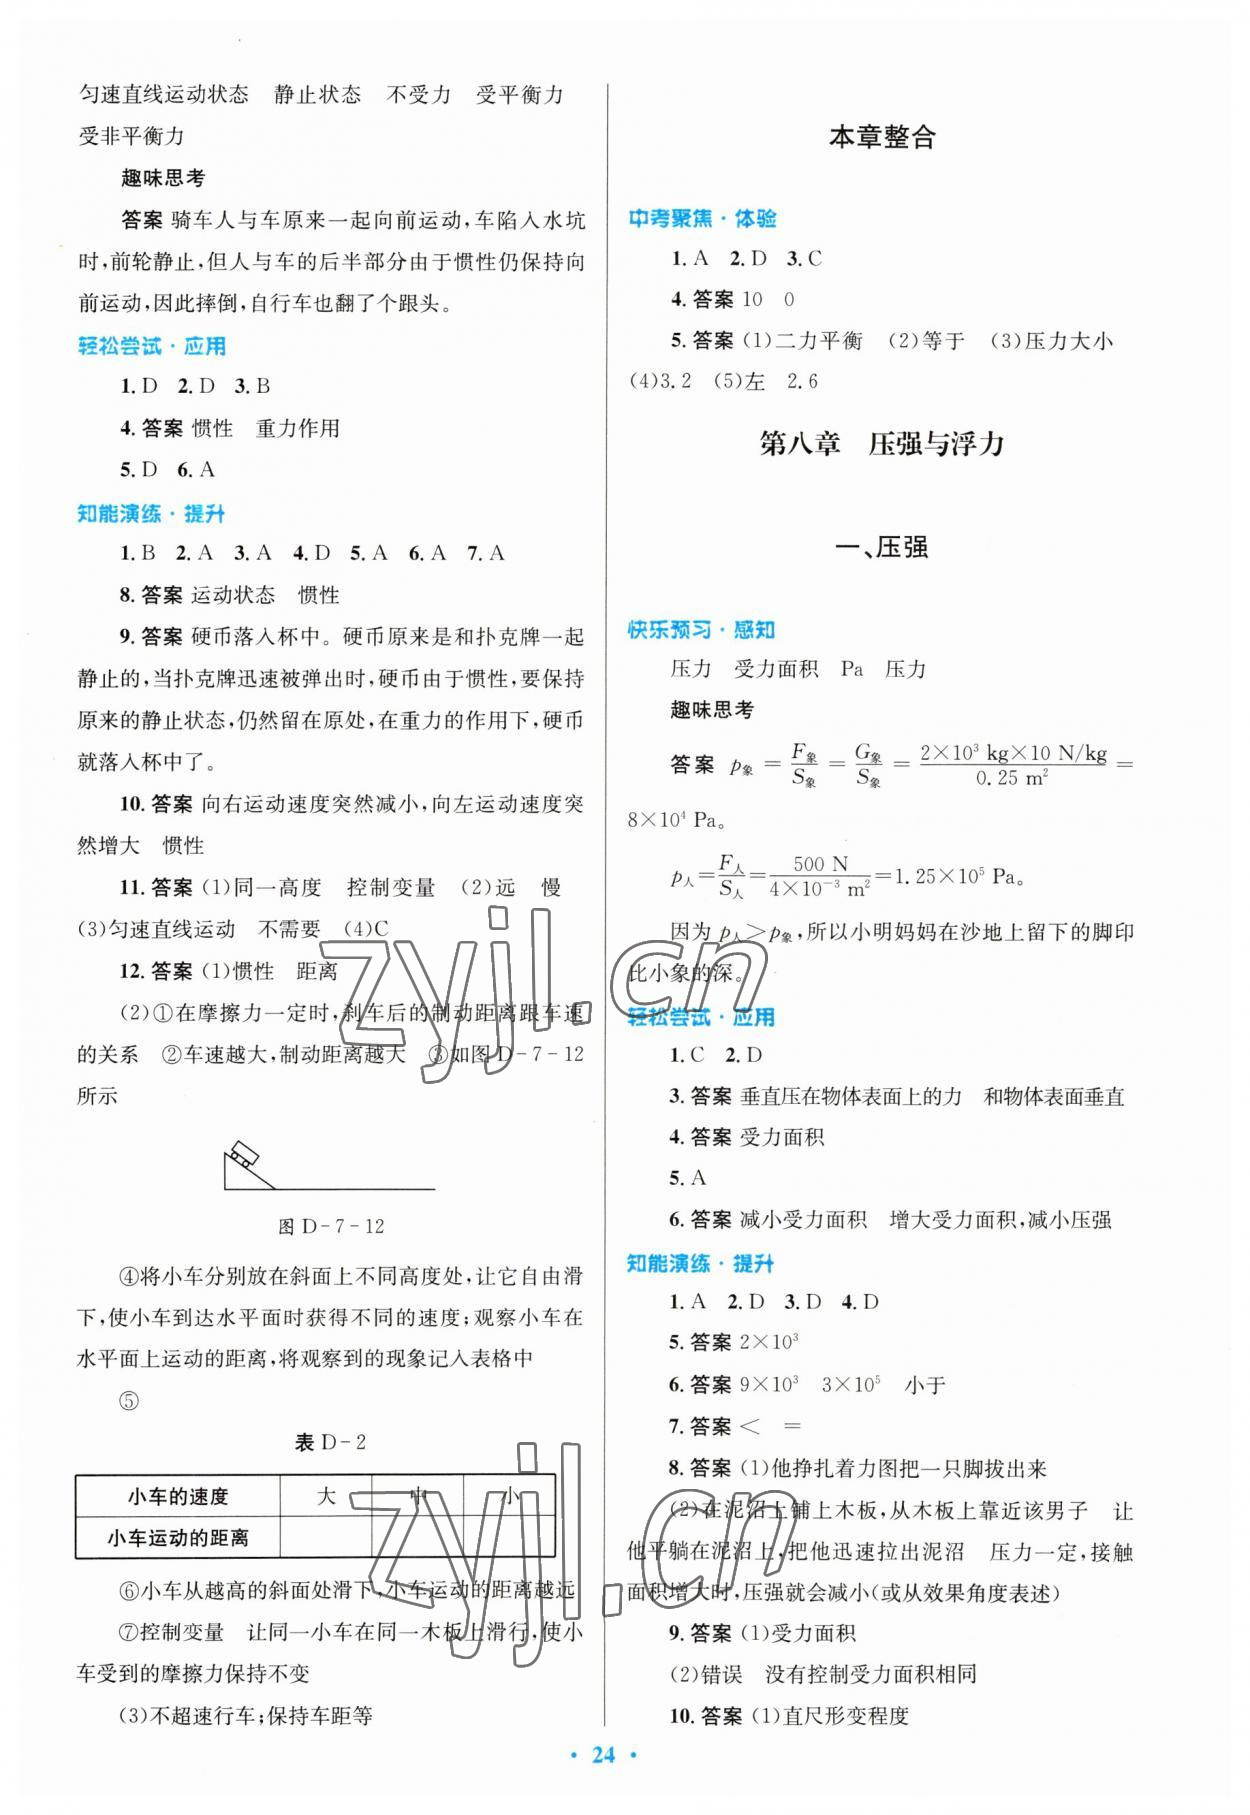 匀速直线运动状态　静止状态　不受力　受平衡力
受非平衡力
趣味思考
答案 骑车人与车原来一起向前运动,车陷入水坑
时,前轮静止,但人与车的后半部分由于惯性仍保持向
前运动,因此摔倒,自行车也翻了个跟头。
轻松尝试·应用
1. D　2. D　3. B
4. 答案 惯性　重力作用
5. D　6. A
知能演练·提升
1. B　2. A　3. A　4. D　5. A　6. A　7. A
8. 答案 运动状态　惯性
9. 答案 硬币落入杯中。硬币原来是和扑克牌一起
静止的,当扑克牌迅速被弹出时,硬币由于惯性,要保持
原来的静止状态,仍然留在原处,在重力的作用下,硬币
就落入杯中了。
10. 答案 向右运动速度突然减小,向左运动速度突
然增大　惯性
11. 答案 (1)同一高度　控制变量　(2)远　慢
(3)匀速直线运动　不需要　(4)C
12. 答案 (1)惯性　距离
(2)①在摩擦力一定时,刹车后的制动距离跟车速
的关系　②车速越大,制动距离越大　③如图 D-7-12
所示
图 D-7-12
④将小车分别放在斜面上不同高度处,让它自由滑
下,使小车到达水平面时获得不同的速度;观察小车在
水平面上运动的距离,将观察到的现象记入表格中
⑤
表 D-2
小车的速度　大　中　小
小车运动的距离
⑥小车从越高的斜面处滑下,小车运动的距离越远
⑦控制变量　让同一小车在同一木板上滑行,使小
车受到的摩擦力保持不变
(3)不超速行车;保持车距等
本章整合
中考聚焦·体验
1. A　2. D　3. C
4. 答案 10　0
5. 答案 (1)二力平衡　(2)等于　(3)压力大小
(4)3.2　(5)左　2.6
第八章　压强与浮力
一、压强
快乐预习·感知
压力　受力面积　Pa　压力
趣味思考
答案 p象 = F象/S象 = G象/S象 = 2×10³ kg×10 N/kg / 0.25 m² =
8×10⁴ Pa。
p人 = F人/S人 = 500 N / 4×10⁻³ m² = 1.25×10⁵ Pa。
因为 p人>p象,所以小明妈妈在沙地上留下的脚印
比小象的深。
轻松尝试·应用
1. C　2. D
3. 答案 垂直压在物体表面上的力　和物体表面垂直
4. 答案 受力面积
5. A
6. 答案 减小受力面积　增大受力面积,减小压强
知能演练·提升
1. A　2. D　3. D　4. D
5. 答案 2×10³
6. 答案 9×10³　3×10⁵　小于
7. 答案 <　=
8. 答案 (1)他挣扎着力图把一只脚拔出来
(2)在泥沼上铺上木板,从木板上靠近该男子　让
他平躺在泥沼上,把他迅速拉出泥沼　压力一定,接触
面积增大时,压强就会减小(或从效果角度表述)
9. 答案 (1)受力面积
(2)错误　没有控制受力面积相同
10. 答案 (1)直尺形变程度
· 24 ·
zyjl.cn
zyjl.cn